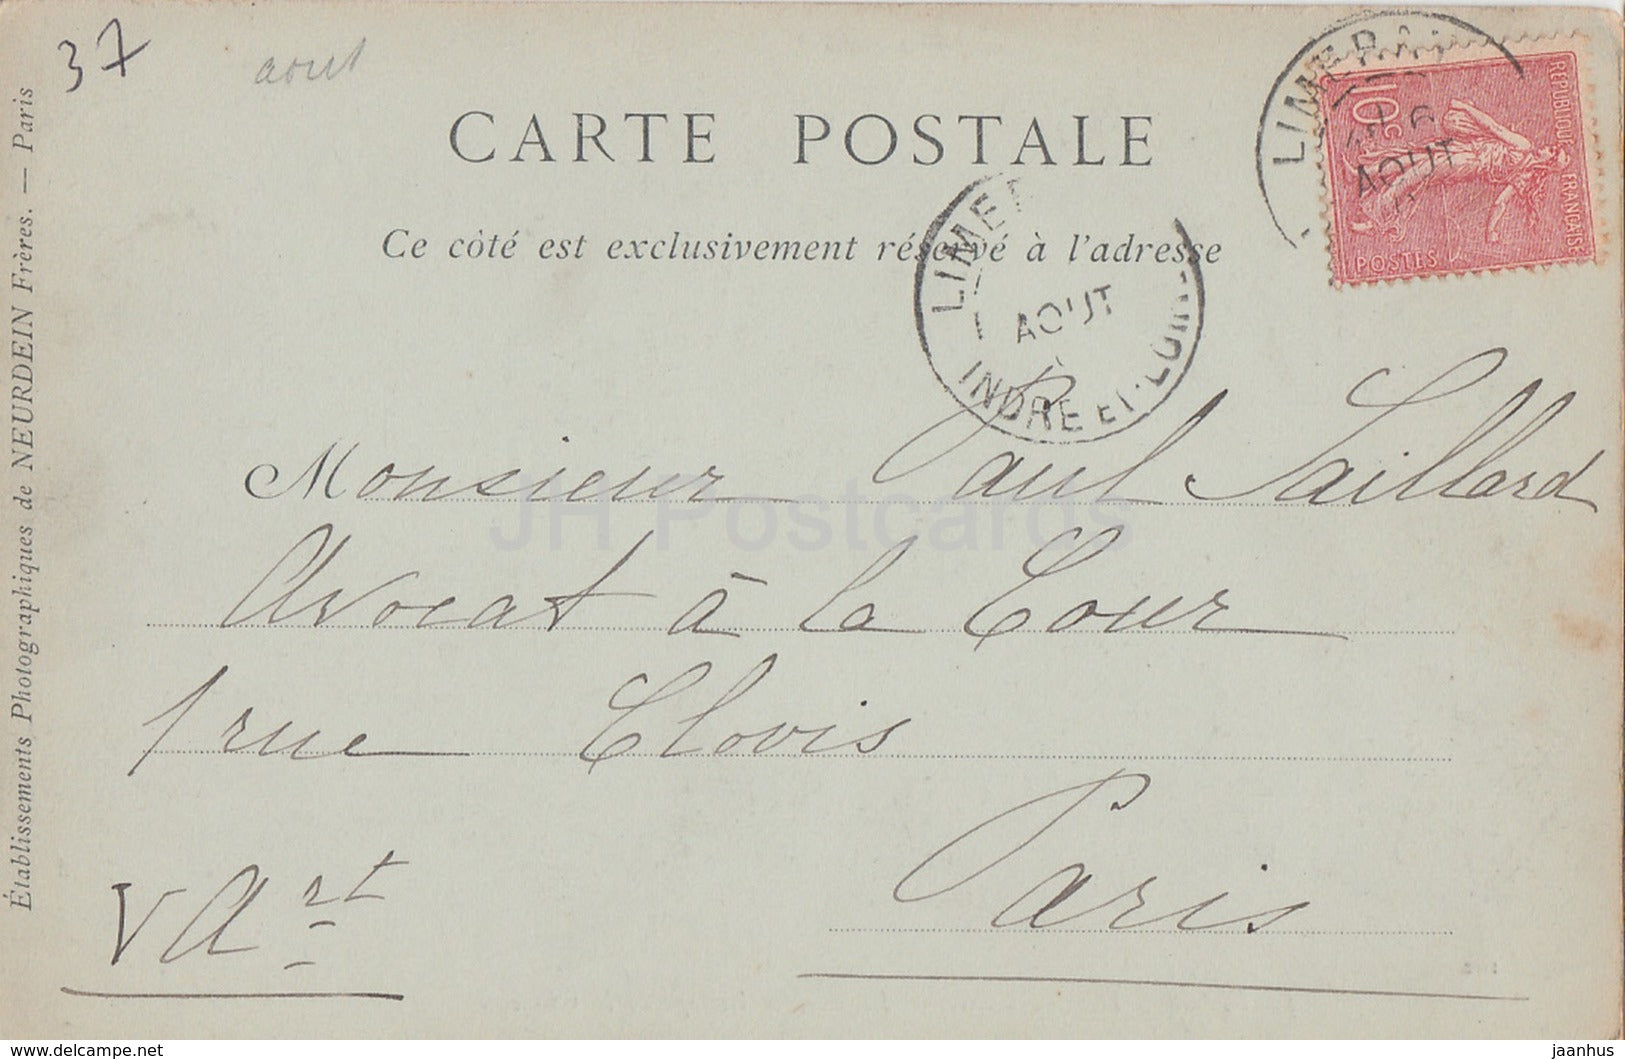 37
aout
CARTE POSTALE
Ce côté est exclusivement réservé à l'adresse
LIMERAY
AOUT
10c
REPUBLIQUE FRANÇAISE
POSTES
LIME
AOUT
INDRE ET-LOIRE
Monsieur Paul Saillard
Avocat à la Cour
1 rue Clovis
Paris
V Art
Établissements Photographiques de NEURDEIN Frères. — Paris
JH Postcards
www.delcampe.net
jaanhus